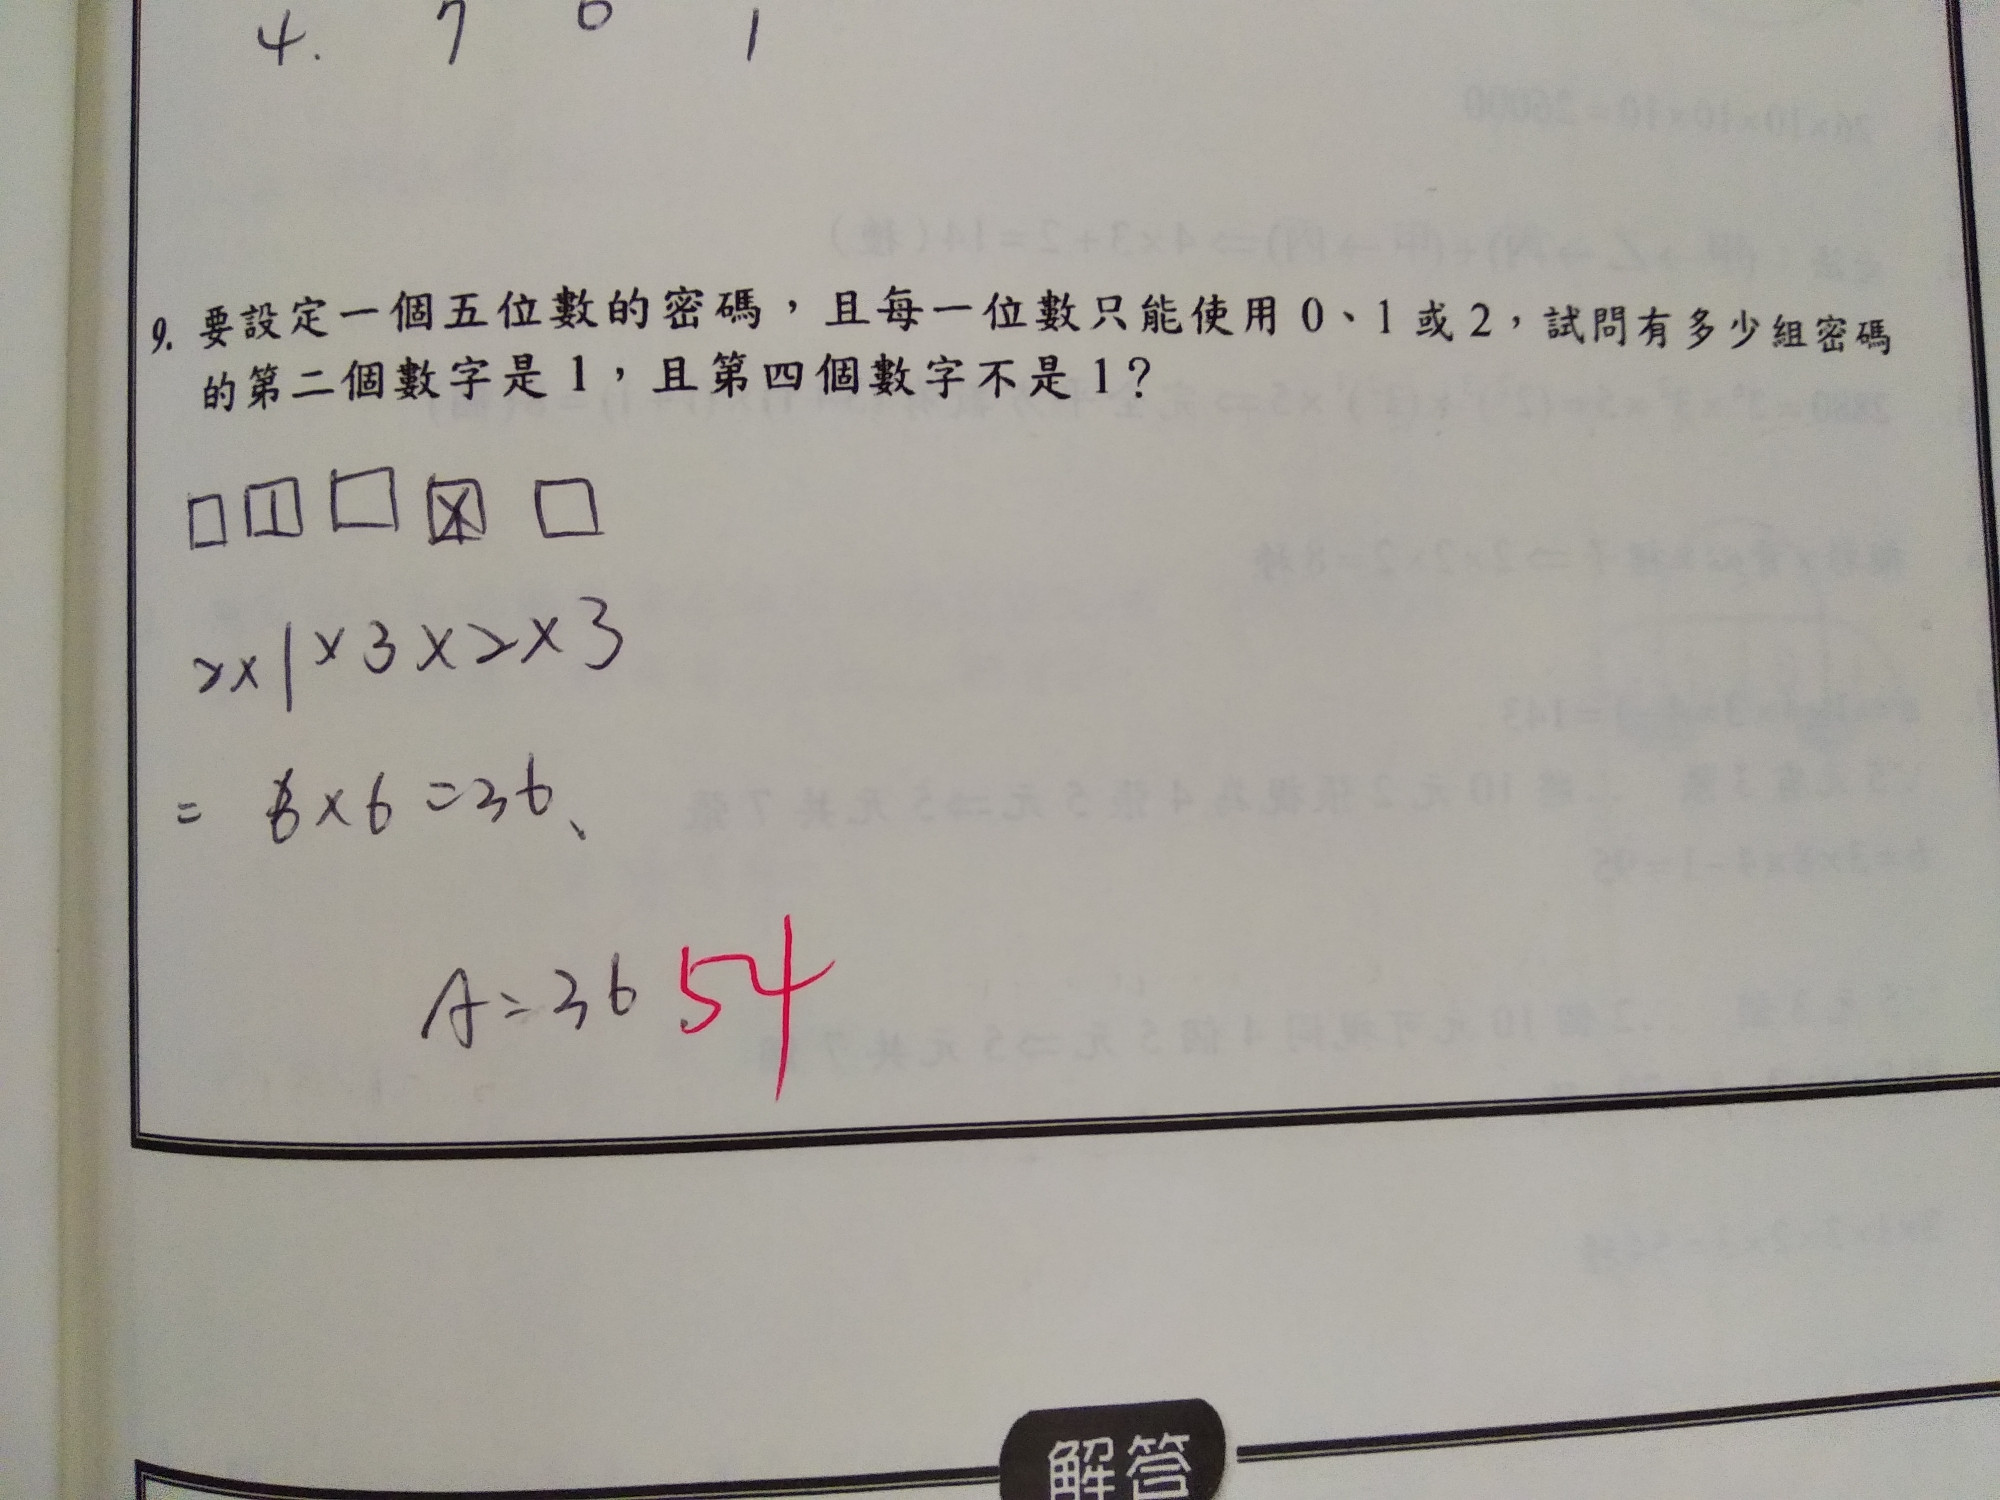 4. 7 6 1
9. 要設定一個五位數的密碼，且每一位數只能使用 0、1 或 2，試問有多少組密碼
的第二個數字是 1，且第四個數字不是 1？
1
2×1×3×2×3
= 6×6=36、
A=36 54
解答